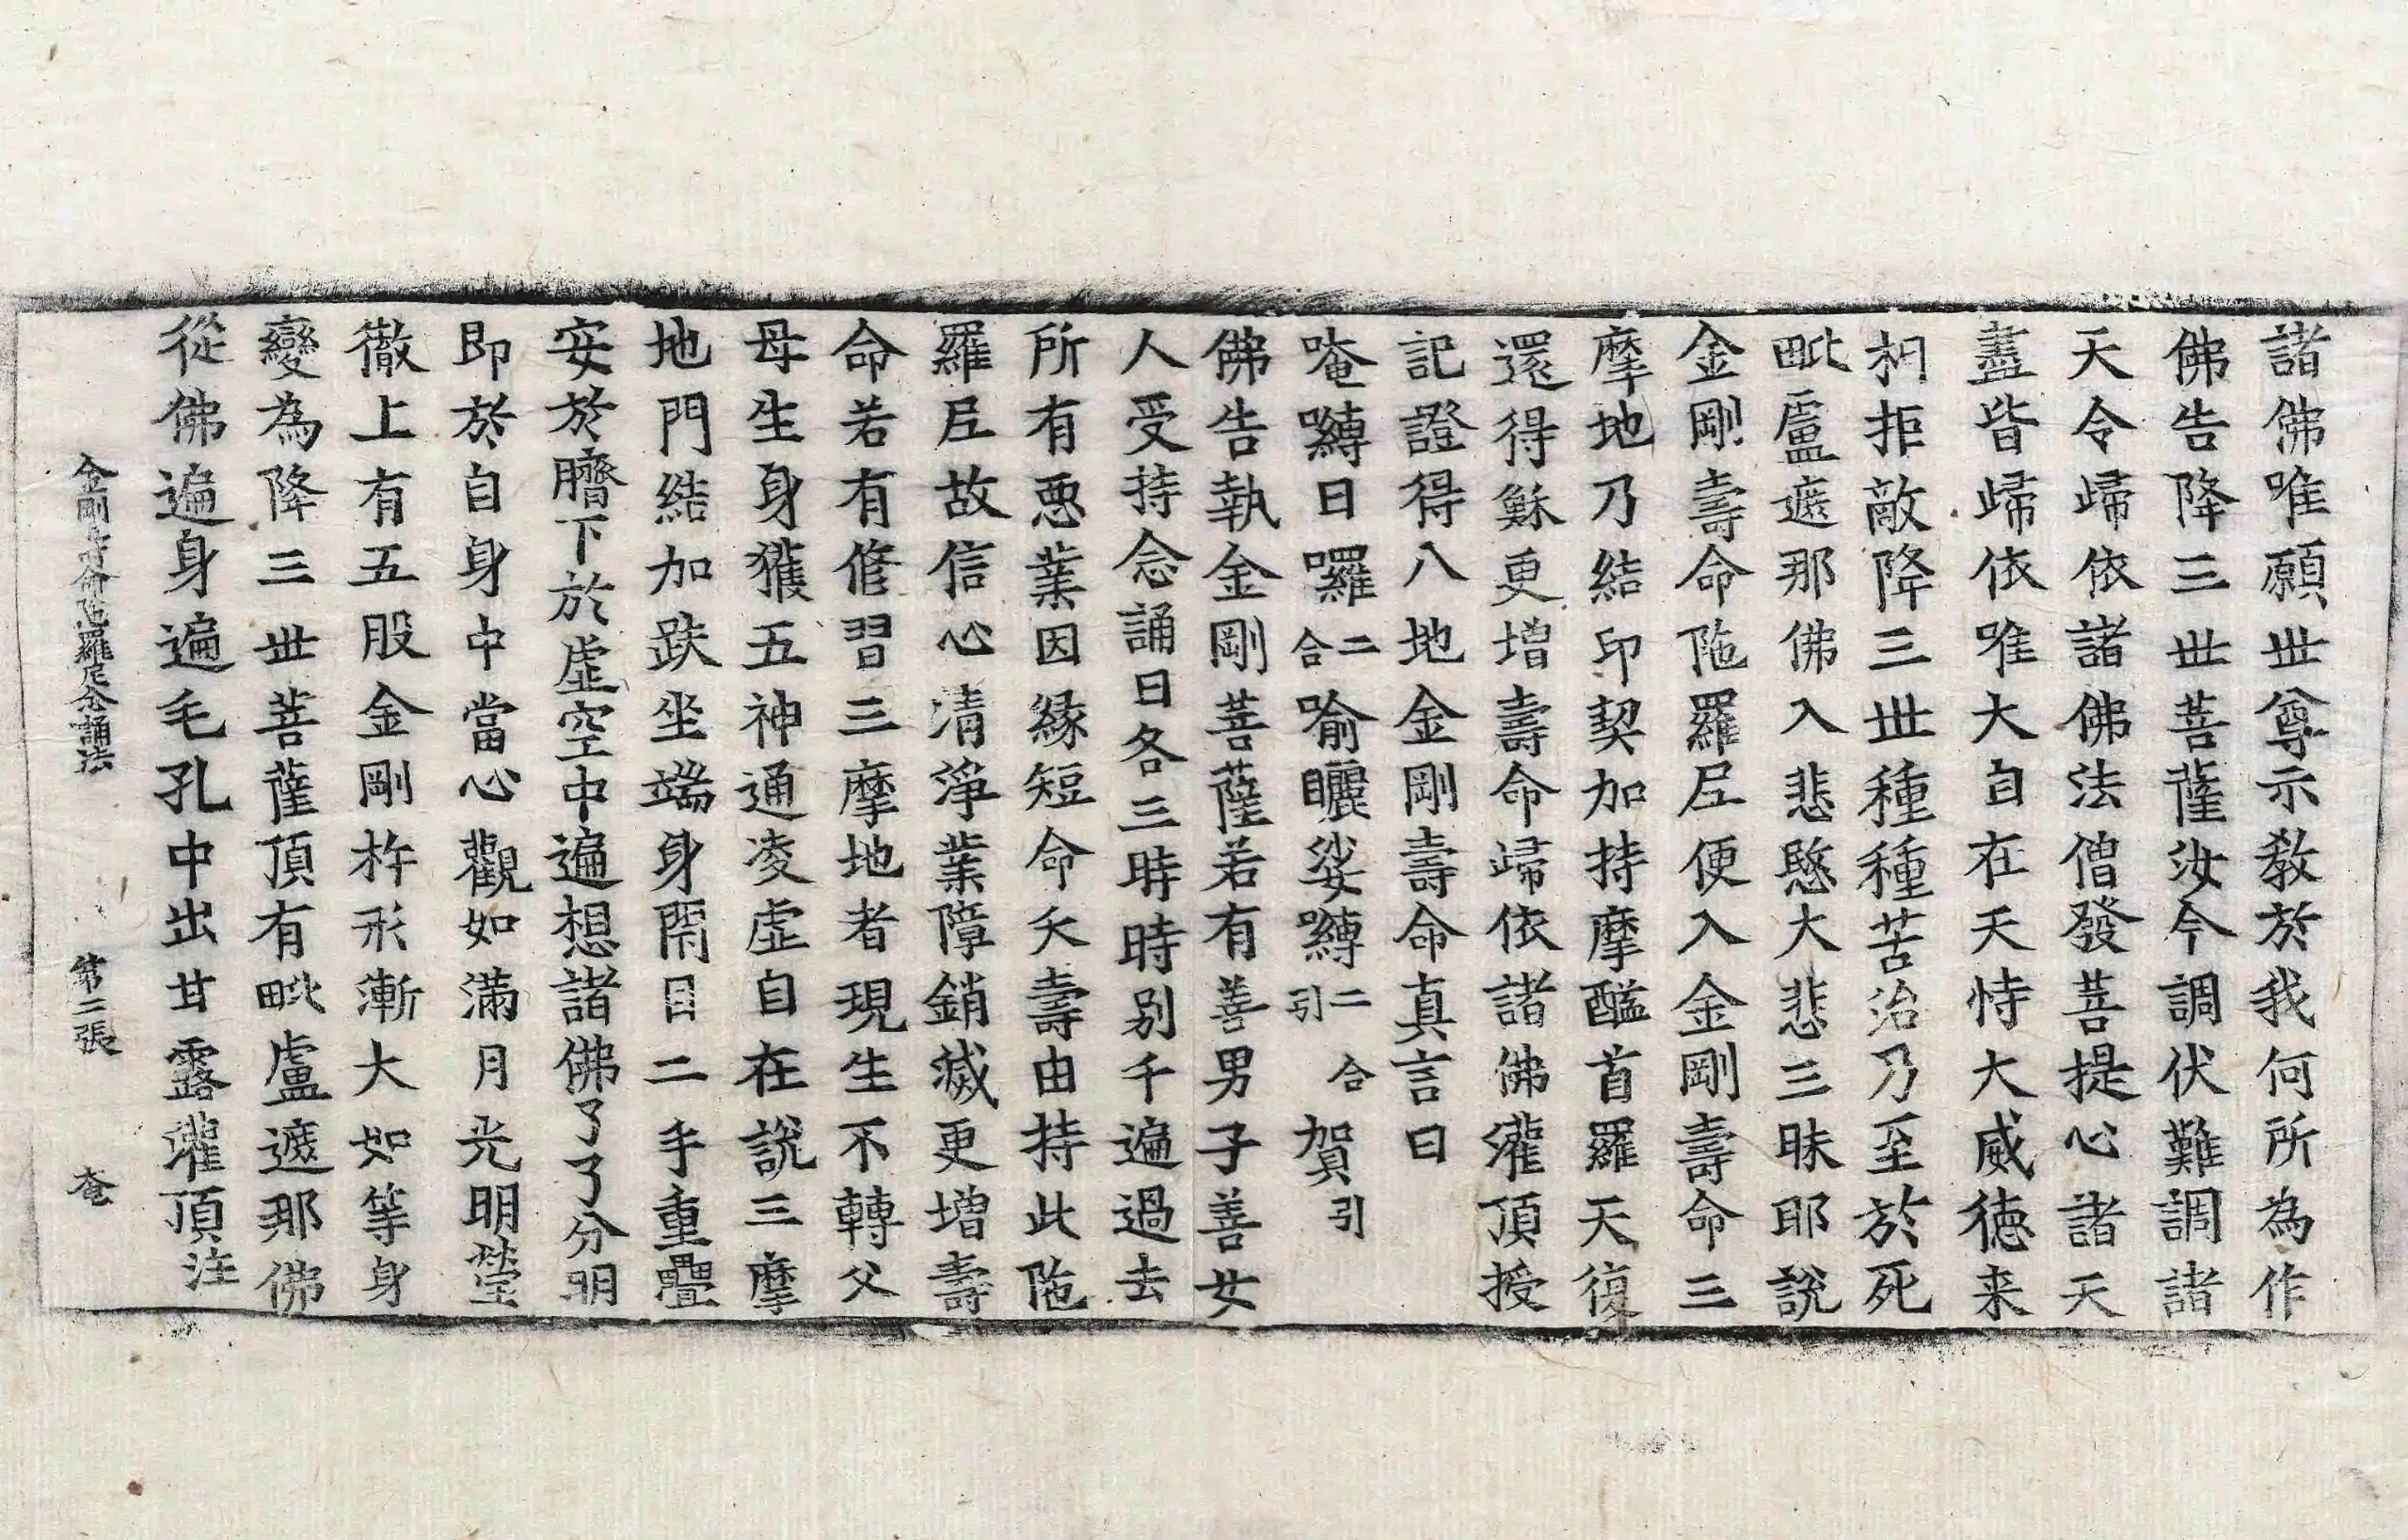 諸佛唯願世尊示教於我何所為作
佛告降三世菩薩汝今調伏難調諸
天令歸依諸佛法僧發菩提心諸天
盡皆歸依唯大自在天恃大威德来
相拒敵降三世種種苦治乃至於死
毗盧遮那佛入悲愍大悲三昧耶說
金剛壽命陁羅尼便入金剛壽命三
摩地乃結印契加持摩醯首羅天復
還得穌更增壽命歸依諸佛灌頂授
記證得八地金剛壽命真言曰
唵嚩日囉二合喻曬娑嚩二合引賀引
佛告執金剛菩薩若有善男子善女
人受持念誦日各三時時別千遍過去
所有惡業因緣短命夭壽由持此陁
羅尼故信心清淨業障銷滅更增壽
命若有修習三摩地者現生不轉父
母生身獲五神通凌虛自在說三摩
地門結加趺坐端身閇目二手重疊
安於臍下於虛空中遍想諸佛了了分明
即於自身中當心觀如滿月光明瑩
徹上有五股金剛杵形漸大如等身
變為降三世菩薩頂有毗盧遮那佛
從佛遍身遍毛孔中出甘露灌頂注
金剛壽命陁羅尼念誦法 第二張 奄